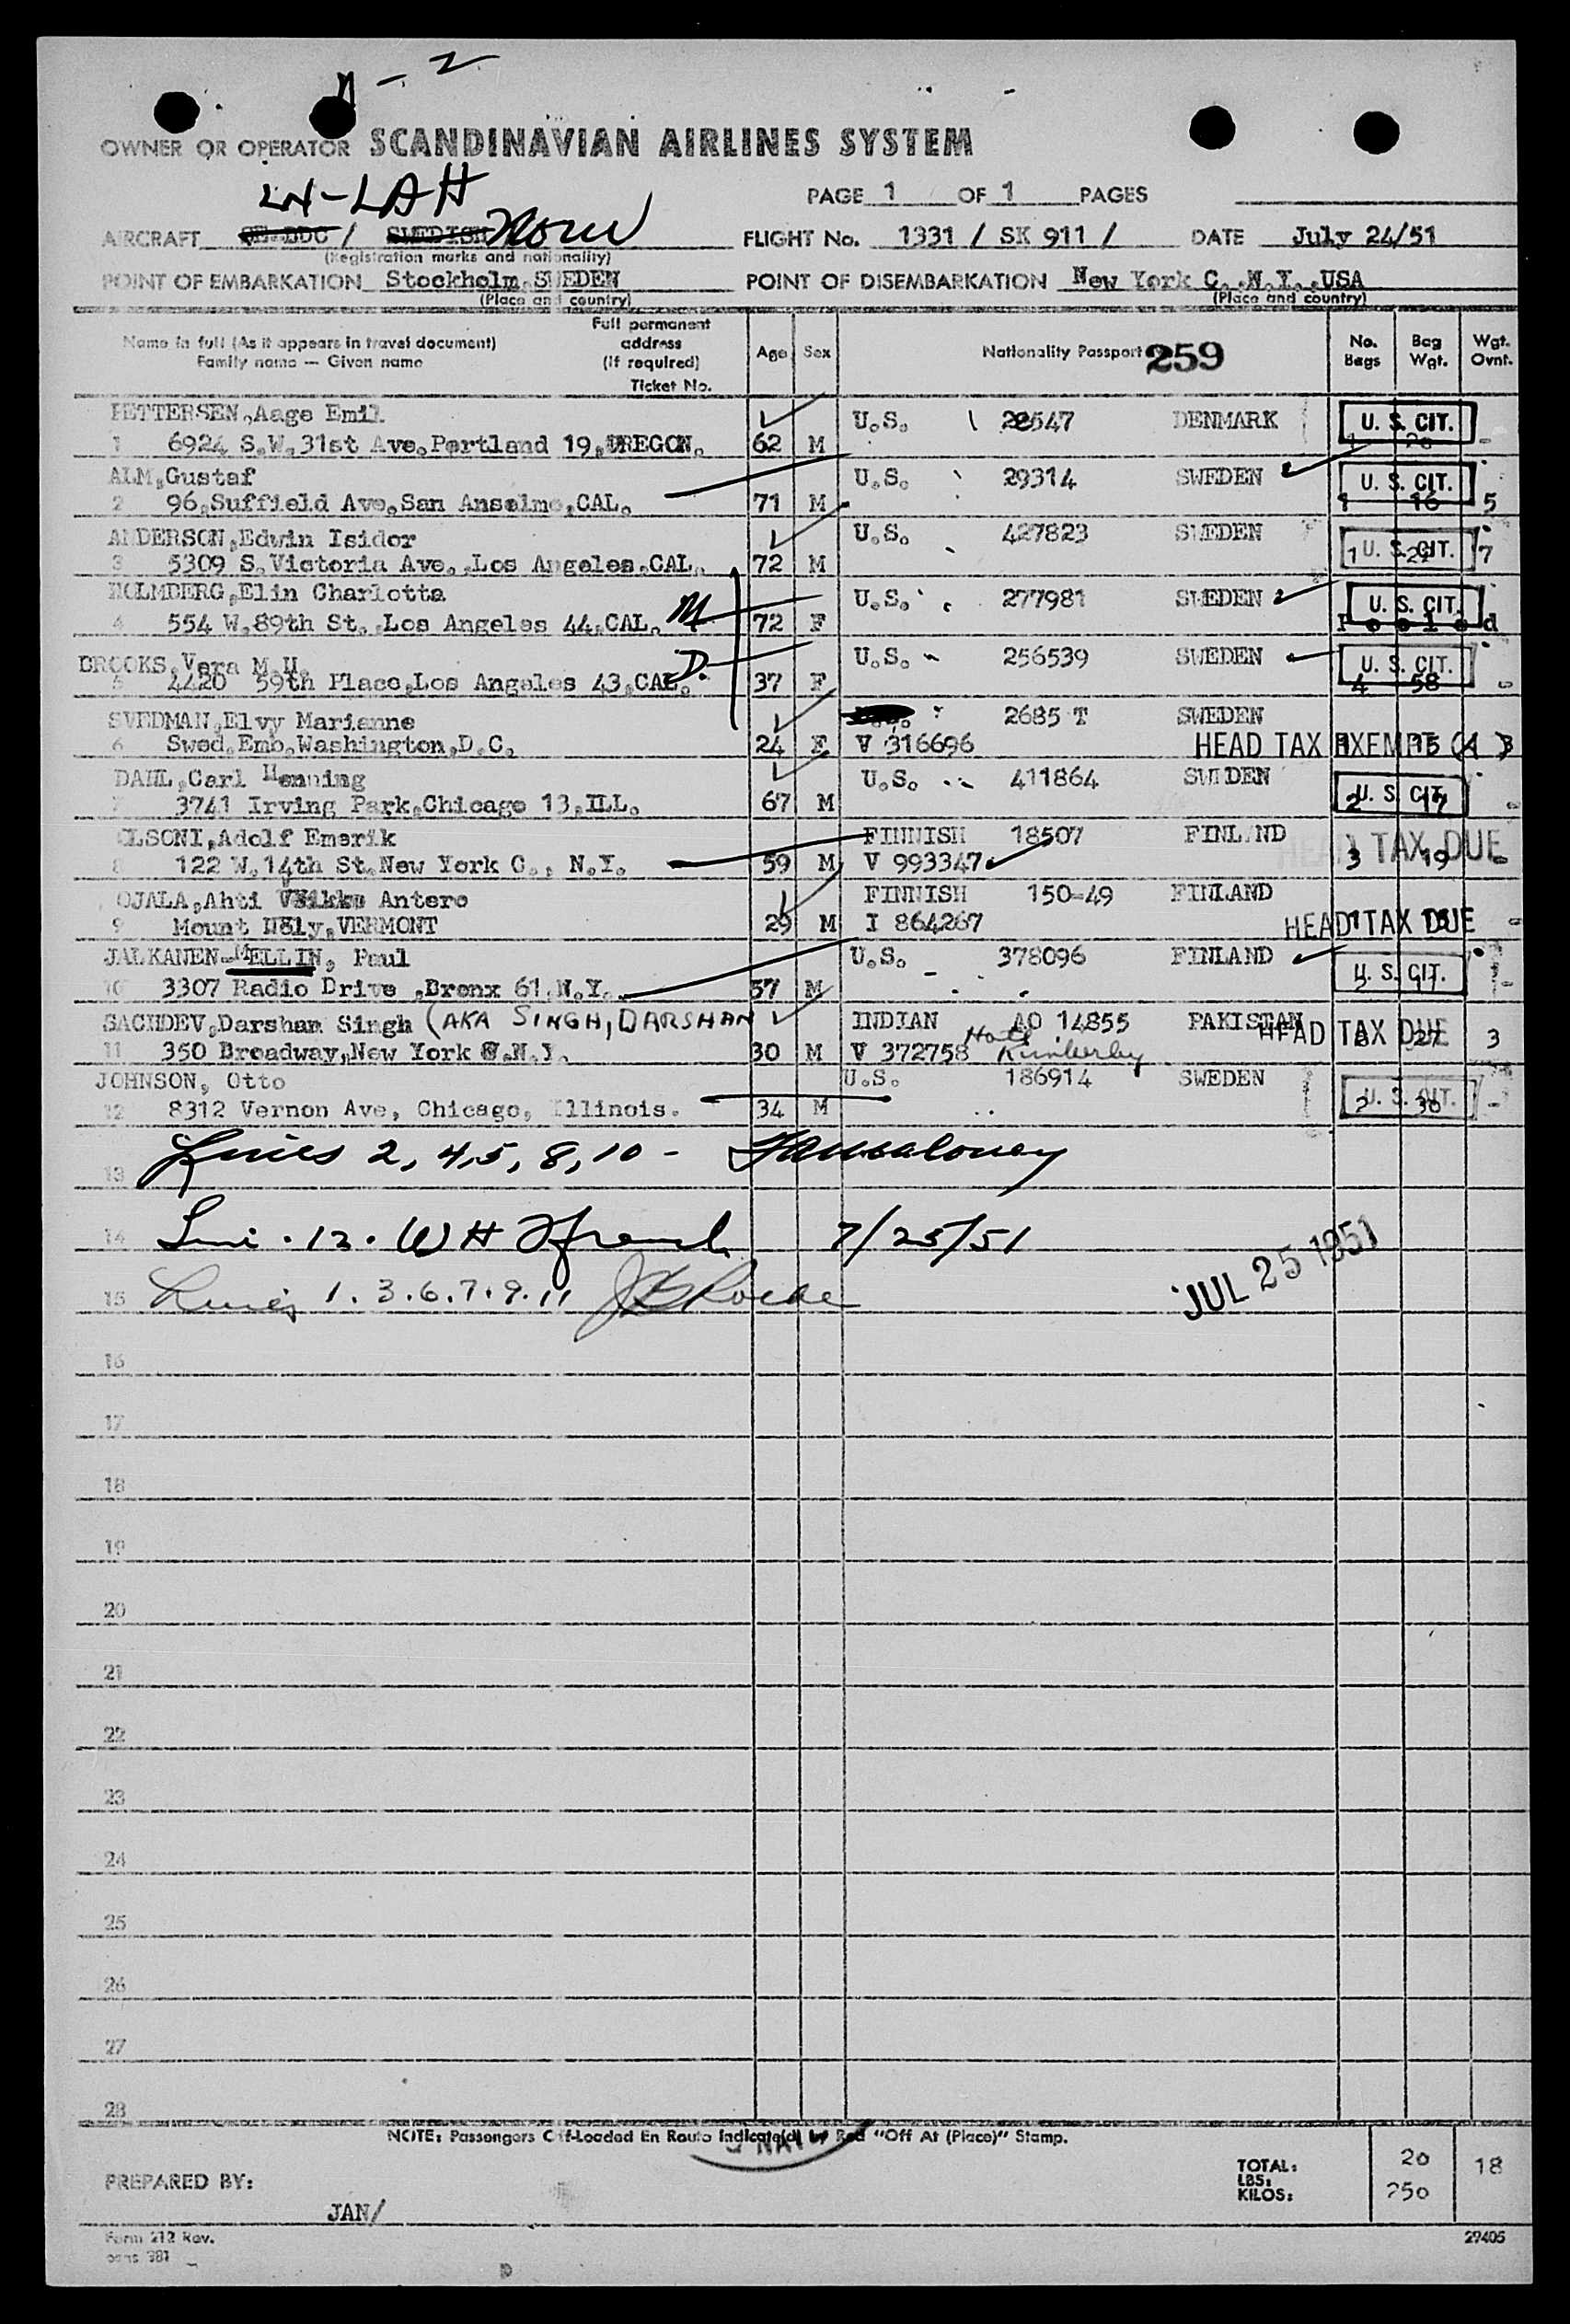 N - 2
OWNER OR OPERATOR SCANDINAVIAN AIRLINES SYSTEM
LN-LAH
PAGE 1 OF 1 PAGES
AIRCRAFT SE-BDC / SWEDISH Norw FLIGHT No. 1331 / SK 911 / DATE July 24/51
(Registration marks and nationality)
POINT OF EMBARKATION Stockholm, SWEDEN POINT OF DISEMBARKATION New York C. N.Y. USA
(Place and country) (Place and country)
Name in full (As it appears in travel document)
Family name — Given name
Full permanent
address
(if required)
Ticket No.
Age Sex Nationality Passport 259 No. Bags Bag Wgt. Wgt. Ovnt.
PETTERSEN, Aage Emil U.S. 547 DENMARK U. S. CIT.
1 6924 S.W. 31st Ave. Portland 19, OREGON. 62 M 1 20 -
ALM, Gustaf U.S. 29314 SWEDEN U. S. CIT.
2 96, Suffield Ave, San Anselmo, CAL. 71 M 1 16 5
ANDERSON, Edwin Isidor U.S. 427823 SWEDEN U. S. CIT.
3 5309 S. Victoria Ave., Los Angeles, CAL. 72 M 1 7
HOLMBERG, Elin Charlotta U.S. 277981 SWEDEN U. S. CIT.
4 554 W. 89th St., Los Angeles 44, CAL. M 72 F P o o l e d
BROOKS, Vera M.U. U.S. 256539 SWEDEN U. S. CIT.
5 4420 59th Place, Los Angeles 43, CAL. D. 37 F 4 58 -
SVEDMAN, Elvy Marianne 2685 T SWEDEN
6 Swed. Emb. Washington, D.C. 24 F V 316696 HEAD TAX EXEMPT 3
DAHL, Carl Henning U.S. 411864 SWEDEN U. S. CIT.
7 3741 Irving Park, Chicago 13, ILL. 67 M 2 17 -
OLSONI, Adolf Emerik FINNISH 18507 FINLAND HEAD TAX DUE
8 122 W. 14th St. New York C., N.Y. 59 M V 993347 3 19 -
OJALA, Ahti Veikko Antero FINNISH 150-49 FINLAND
9 Mount Holy, VERMONT 29 M I 864267 HEAD TAX DUE -
JALKANEN-MELLIN, Paul U.S. 378096 FINLAND U. S. CIT.
10 3307 Radio Drive, Bronx 61, N.Y. 57 M
SACHDEV, Darshan Singh (AKA SINGH, DARSHAN INDIAN AO 14855 PAKISTAN HEAD TAX DUE
11 350 Broadway, New York C.N.Y. 30 M V 372758 Hotel Kimberly 27 3
JOHNSON, Otto U.S. 186914 SWEDEN U. S. CIT.
12 8312 Vernon Ave, Chicago, Illinois. 34 M 2 30 -
13 Lines 2, 4, 5, 8, 10 -
14 Line 12. WH French 7/25/51
JUL 25 1951
15 Lines 1. 3. 6. 7. 9. 11
16
17
18
19
20
21
22
23
24
25
26
27
28
NOTE: Passengers Off-Loaded En Route Indicate(d) by Red "Off At (Place)" Stamp.
PREPARED BY:
JAN/
TOTAL: 20 18
LBS:
KILOS: 250
Form 212 Rev.
29405